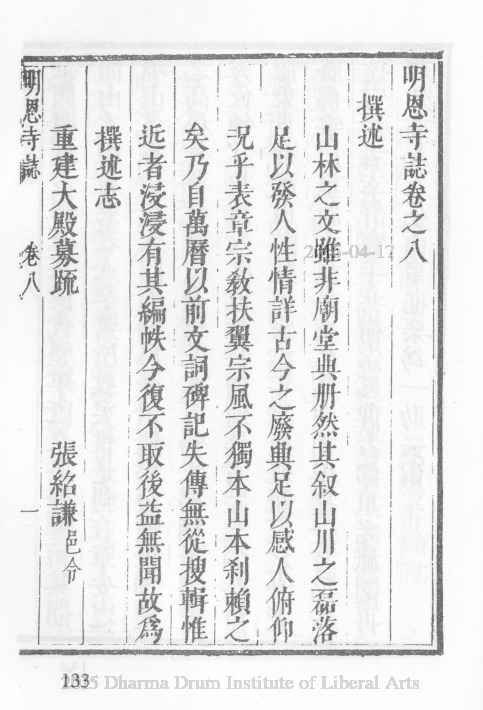 明恩寺誌卷之八
撰述
山林之文雖非廟堂典册然其叙山川之磊落
足以發人性情詳古今之廢興足以感人俯仰
况乎表章宗敎扶翼宗風不獨本山本刹賴之
矣乃自萬曆以前文詞碑記失傳無從搜輯惟
近者浸浸有其編帙今復不取後益無聞故爲
撰述志
重建大殿募䟽 張紹謙邑令
明恩寺誌 卷八 一
133
Dharma Drum Institute of Liberal Arts